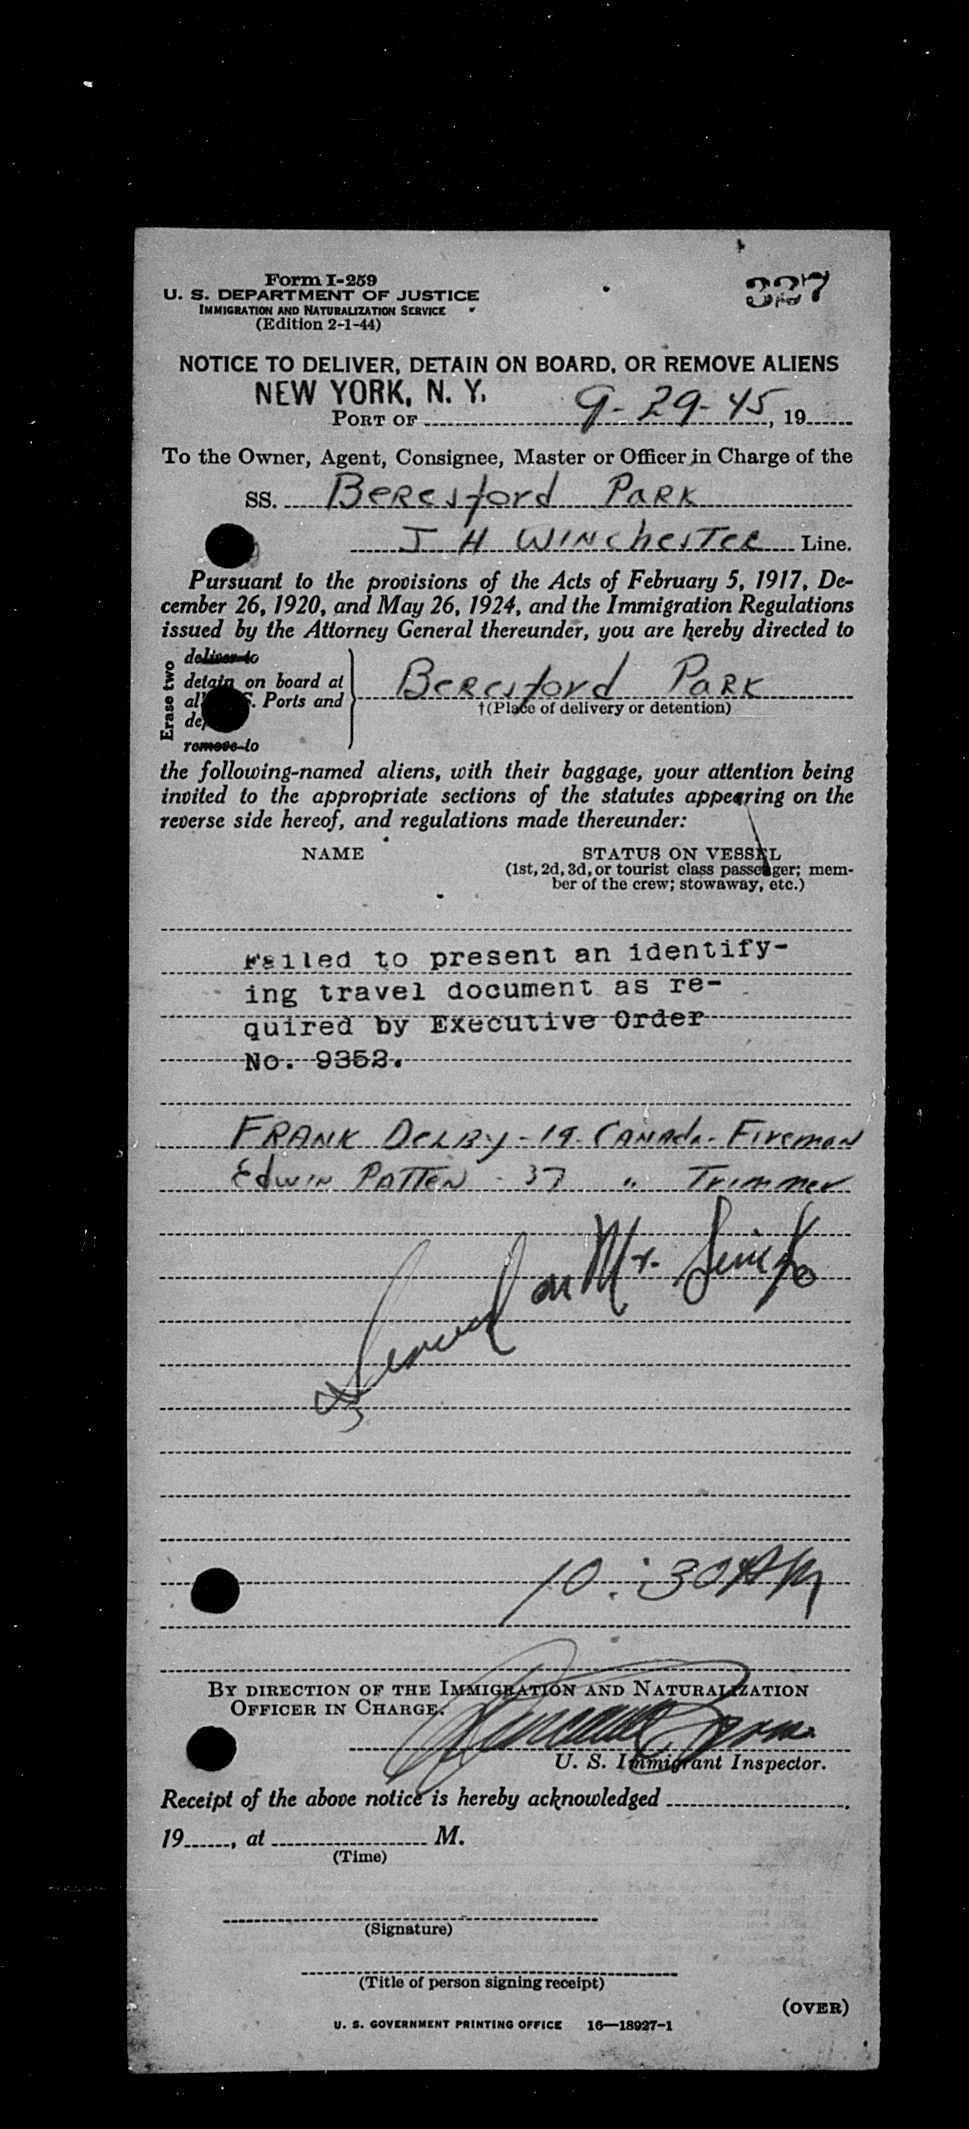 Form I-259
U. S. DEPARTMENT OF JUSTICE
IMMIGRATION AND NATURALIZATION SERVICE
(Edition 2-1-44)
327
NOTICE TO DELIVER, DETAIN ON BOARD, OR REMOVE ALIENS
NEW YORK, N. Y.
PORT OF 9-29-45, 19
To the Owner, Agent, Consignee, Master or Officer in Charge of the
SS. Beresford Park
J H Winchester Line.
Pursuant to the provisions of the Acts of February 5, 1917, De-
cember 26, 1920, and May 26, 1924, and the Immigration Regulations
issued by the Attorney General thereunder, you are hereby directed to
Erase two
deliver to
detain on board at
Ports and
remove to
Beresford Park
†(Place of delivery or detention)
the following-named aliens, with their baggage, your attention being
invited to the appropriate sections of the statutes appearing on the
reverse side hereof, and regulations made thereunder:
NAME
STATUS ON VESSEL
(1st, 2d, 3d, or tourist class passenger; mem-
ber of the crew; stowaway, etc.)
Failed to present an identify-
ing travel document as re-
quired by Executive Order
No. 9352.
Frank Delby - 19 - Canada - Fireman
Edwin Patten - 37 " Trimmer
Served on Mr.
10:30 AM
BY DIRECTION OF THE IMMIGRATION AND NATURALIZATION
OFFICER IN CHARGE.
U. S. Immigrant Inspector.
Receipt of the above notice is hereby acknowledged
19, at M.
(Time)
(Signature)
(Title of person signing receipt)
(OVER)
U. S. GOVERNMENT PRINTING OFFICE 16—18927-1